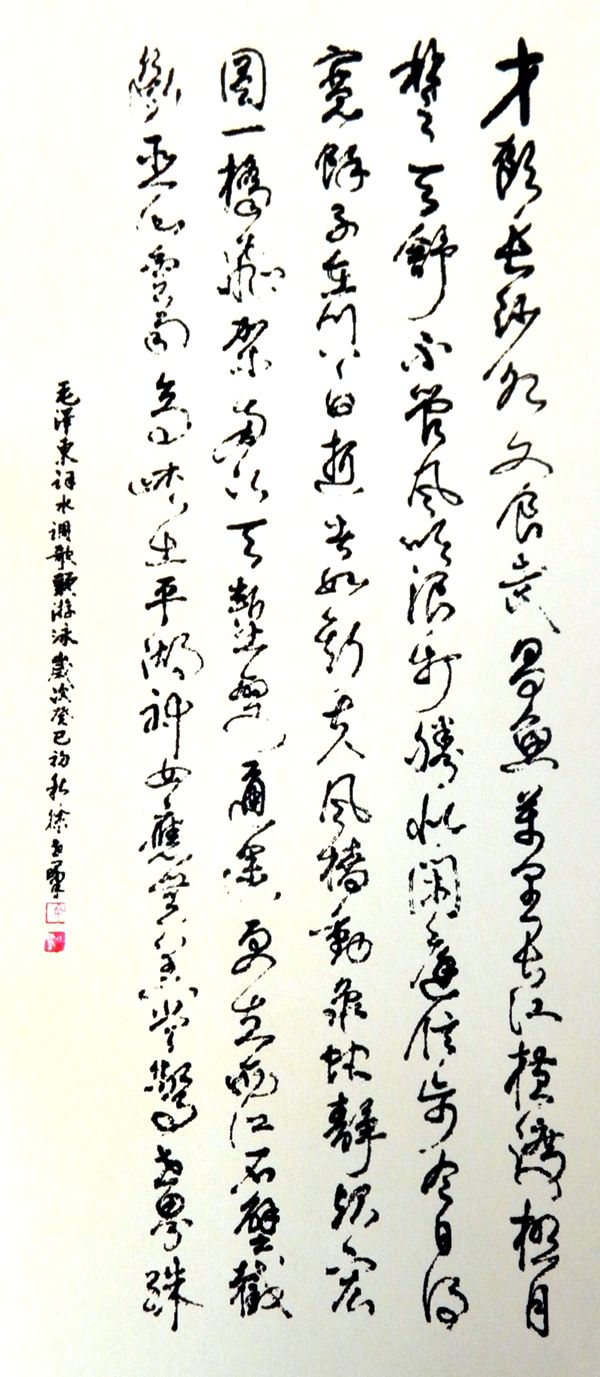 才飲長沙水又食武昌魚萬里長江橫渡極目
楚天舒不管風吹浪打勝似閑庭信步今日得
寬餘子在川上曰逝者如斯夫風檣動龜蛇靜起宏
圖一橋飛架南北天塹變通途更立西江石壁截
斷巫山雲雨高峽出平湖神女應無恙當驚世界殊
毛澤東詞水調歌頭游泳歲次癸巳初秋徐